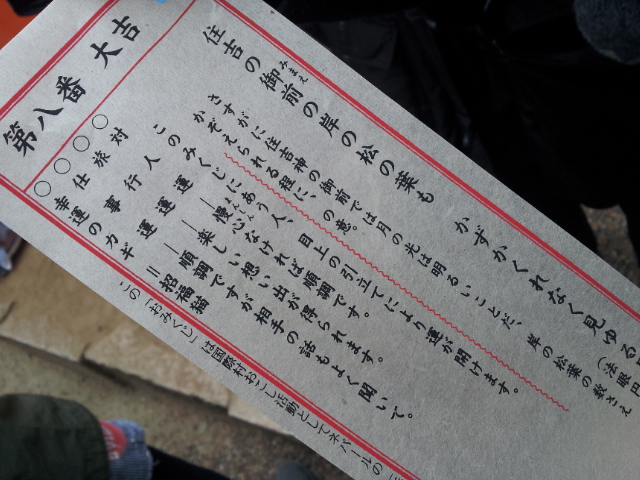 第八番 大吉
住吉の御前の岸の松の葉も
みまえ
かずかくれなく見ゆる
（法眼円
さすがに住吉神の御前では月の光は明るいことだ、岸の松葉の数さえ
かぞえられる程に、の意。
このみくじにあう人 目上の引立てにより運が開けます。
○対人運―慢心なければ順調です。
まんしん
○旅行運―楽しい想い出が得られます。
○仕事運―順調ですが相手の話もよく聞いて。
○幸運のカギ＝招福猫
この「おみくじ」は国際村おこし活動としてネパールの